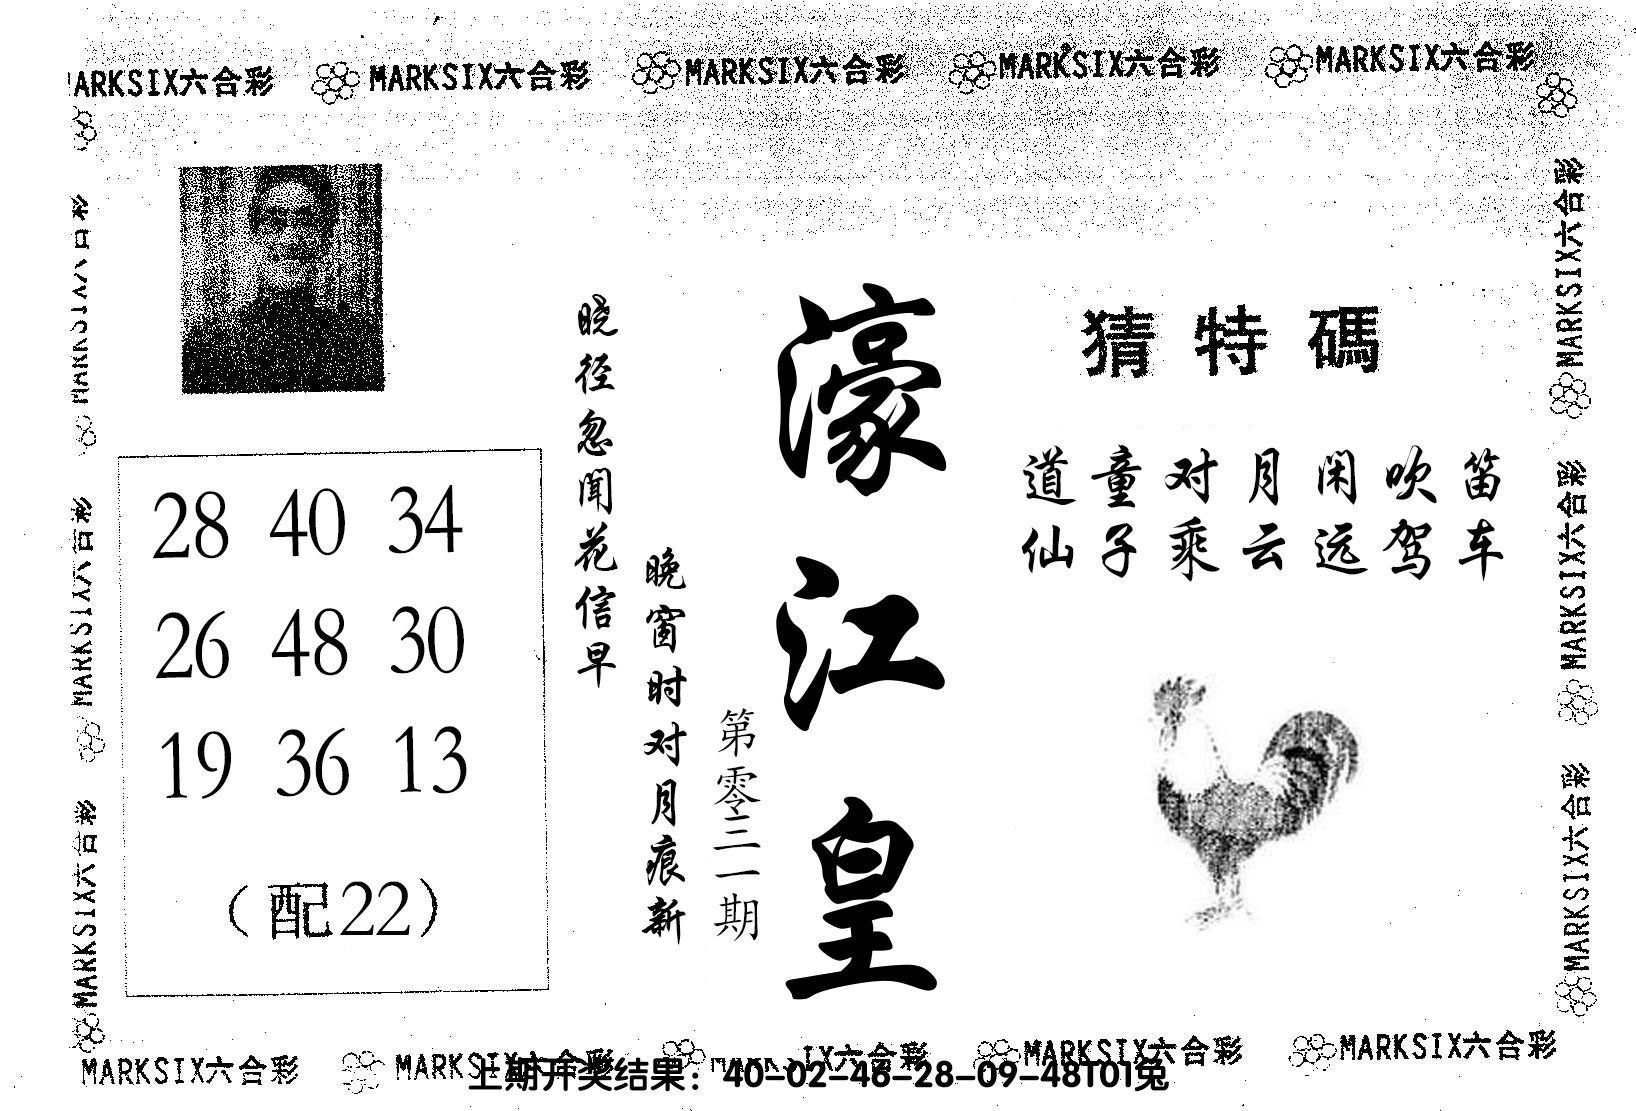 MARKSIX六合彩 MARKSIX六合彩 MARKSIX六合彩 MARKSIX六合彩 MARKSIX六合彩
MARKSIX六合彩
MARKSIX六合彩
MARKSIX六合彩
28 40 34
26 48 30
19 36 13
（配22）
晓径忽闻花信早
晚窗时对月痕新
第零三一期
濠江皇
猜特碼
道童对月闲吹笛
仙子乘云远驾车
MARKSIX六合彩
MARKSIX六合彩
MARKSIX六合彩
MARKSIX六合彩 MARKSIX六合彩 MARKSIX六合彩 MARKSIX六合彩 MARKSIX六合彩
上期开奖结果：40-02-46-28-09-48T01兔